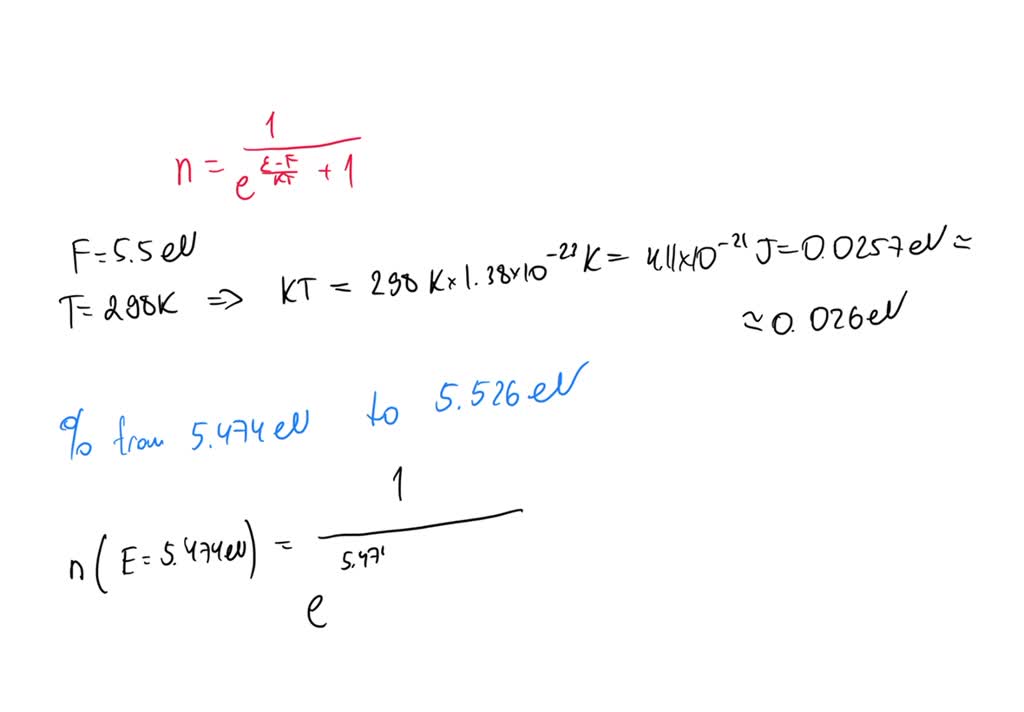 n = 1 / (e^((ε-F)/KT) + 1)
F=5.5 eV
T=298K => KT = 298 K × 1.38×10^-23 K = 4.11×10^-21 J = 0.0257 eV ≃
≃ 0.026 eV
% from 5.474 eV to 5.526 eV
n(E=5.474 eV) = 1 / e^(5.47